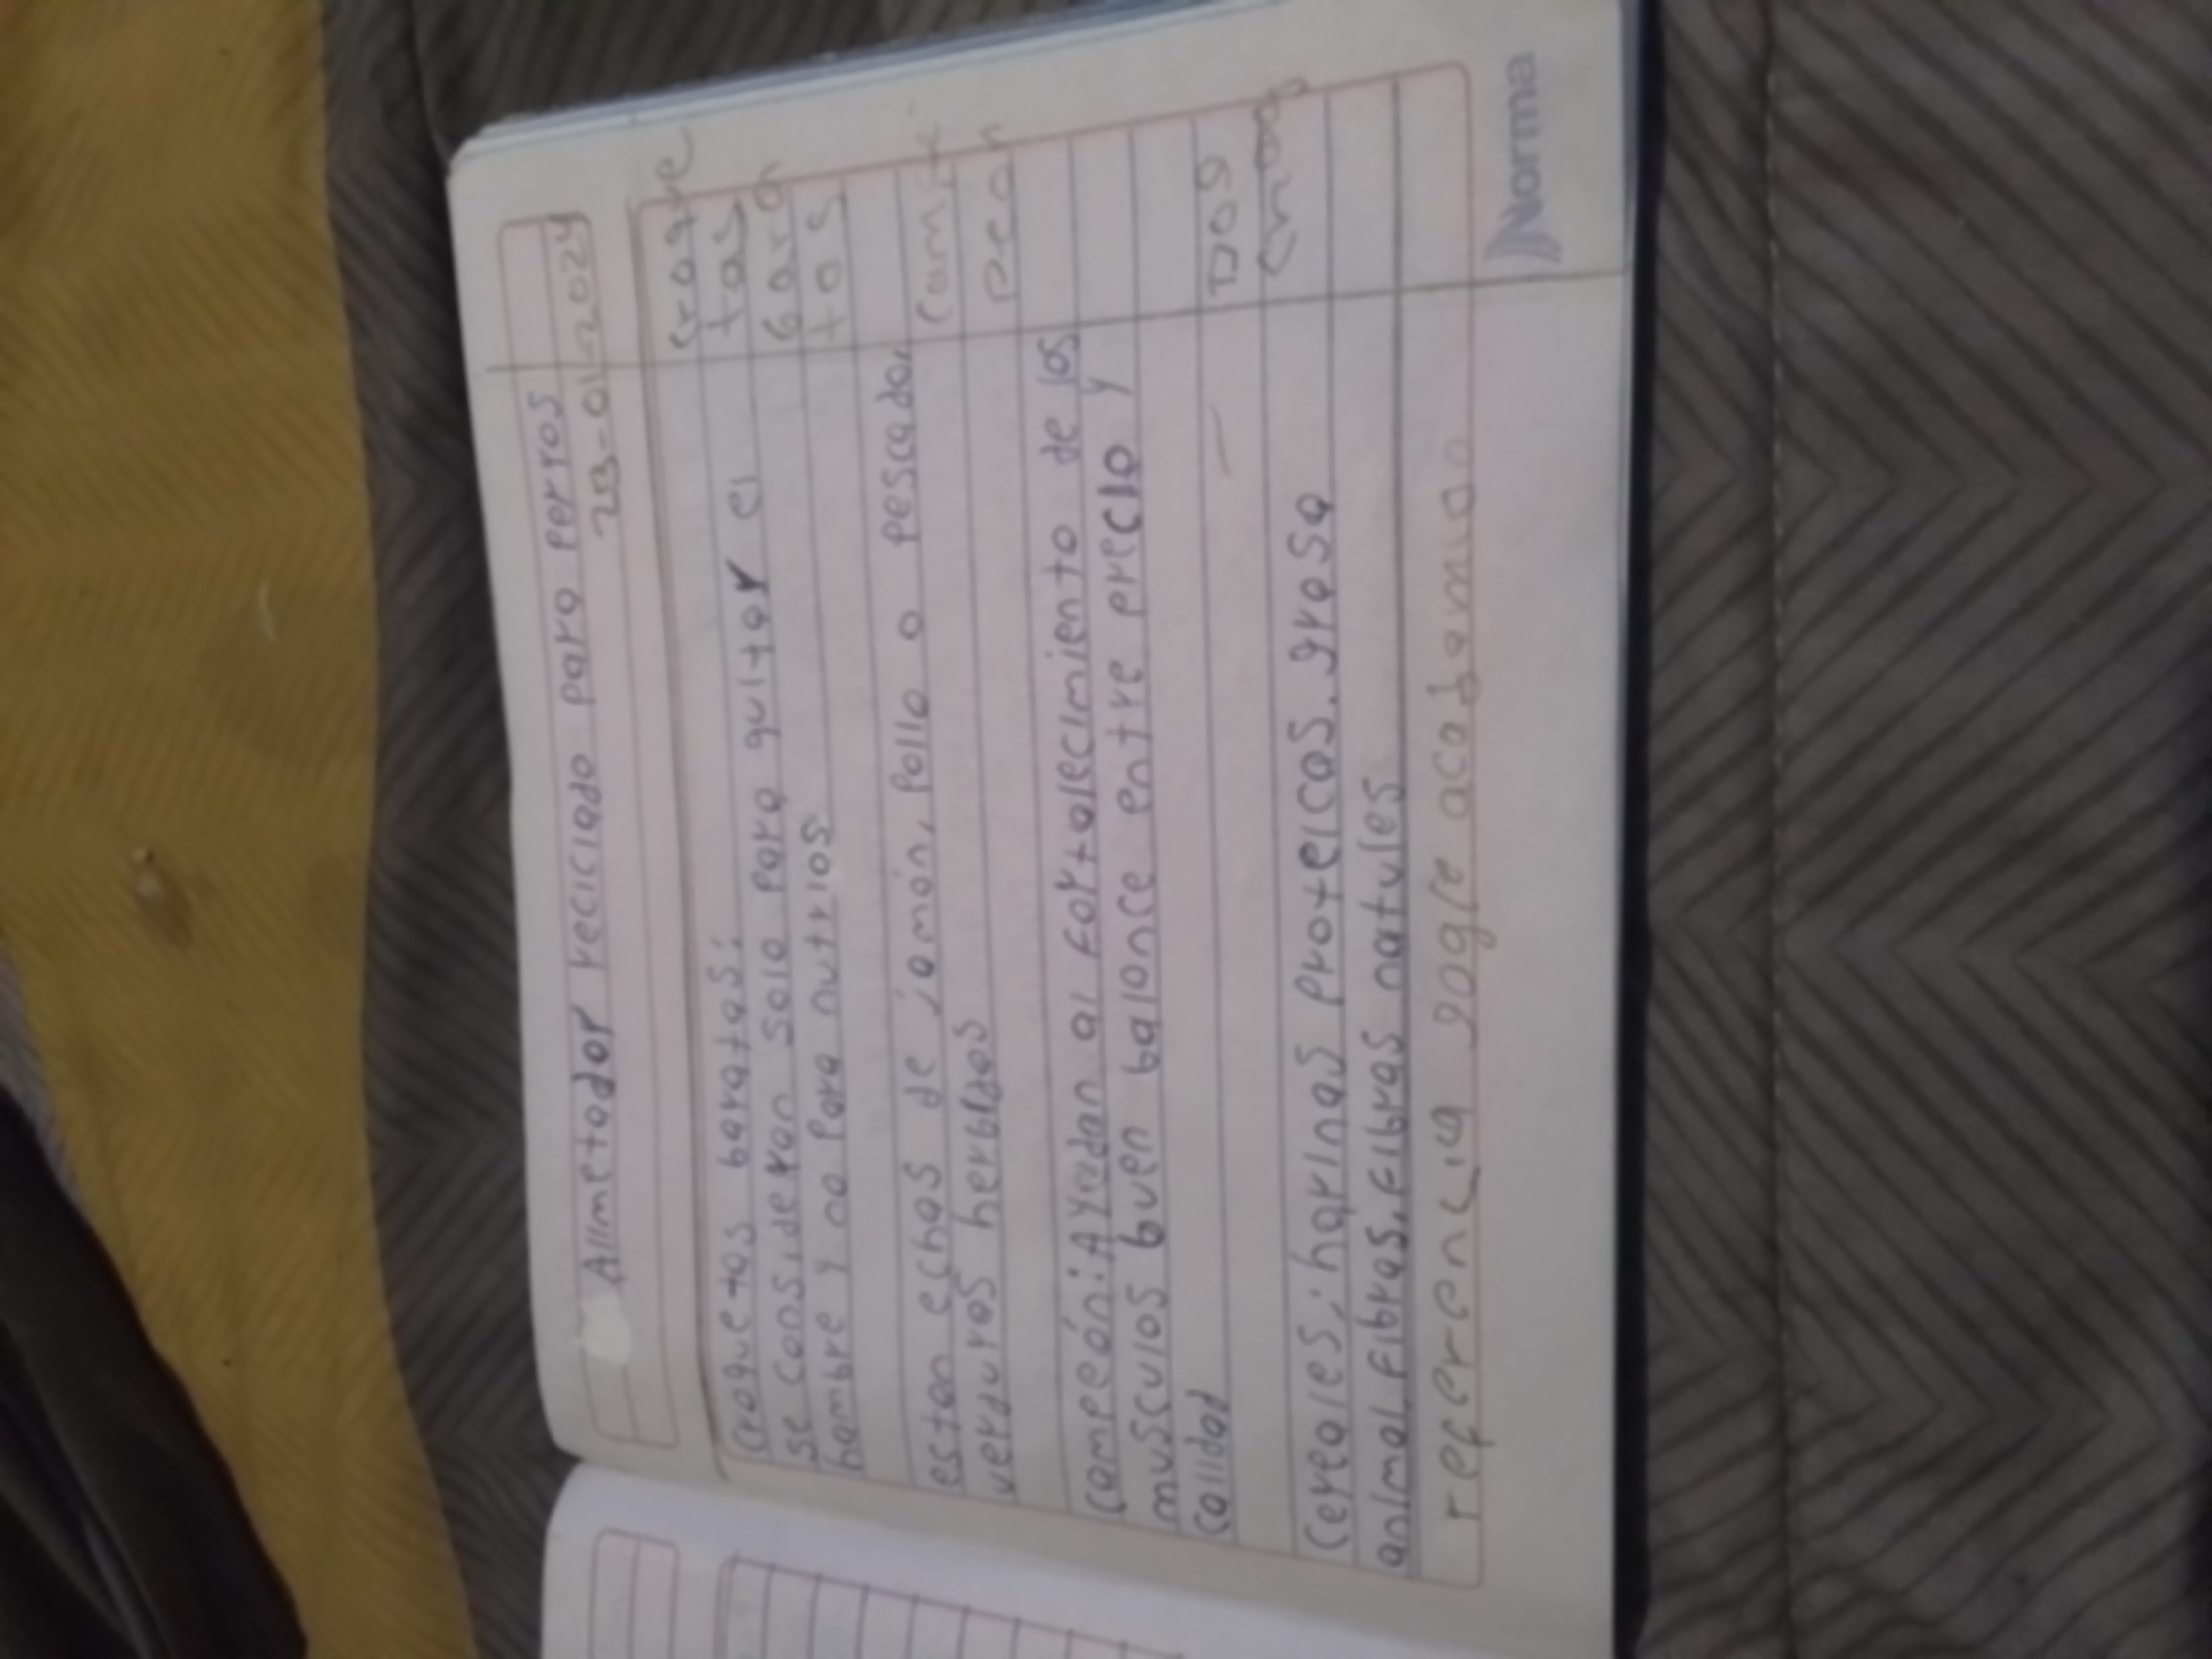 Alimetador reciclado para perros
28-01-2024
croquetas baratas:
se consideran solo para quitar el
hambre y no para nutrios
croque
tas
bara
tos
estan echos de jamón, pollo o pescado,
verduras herbidas
Campeón: Ayudan al Fortalecimiento de los
musculos buen balance entre precio y
calidad
Cam
peón
cereales; harinas proteicas. grasa
animal.Fibras.Fibras natules
DOg
chaos
referencia gogle academico
Norma